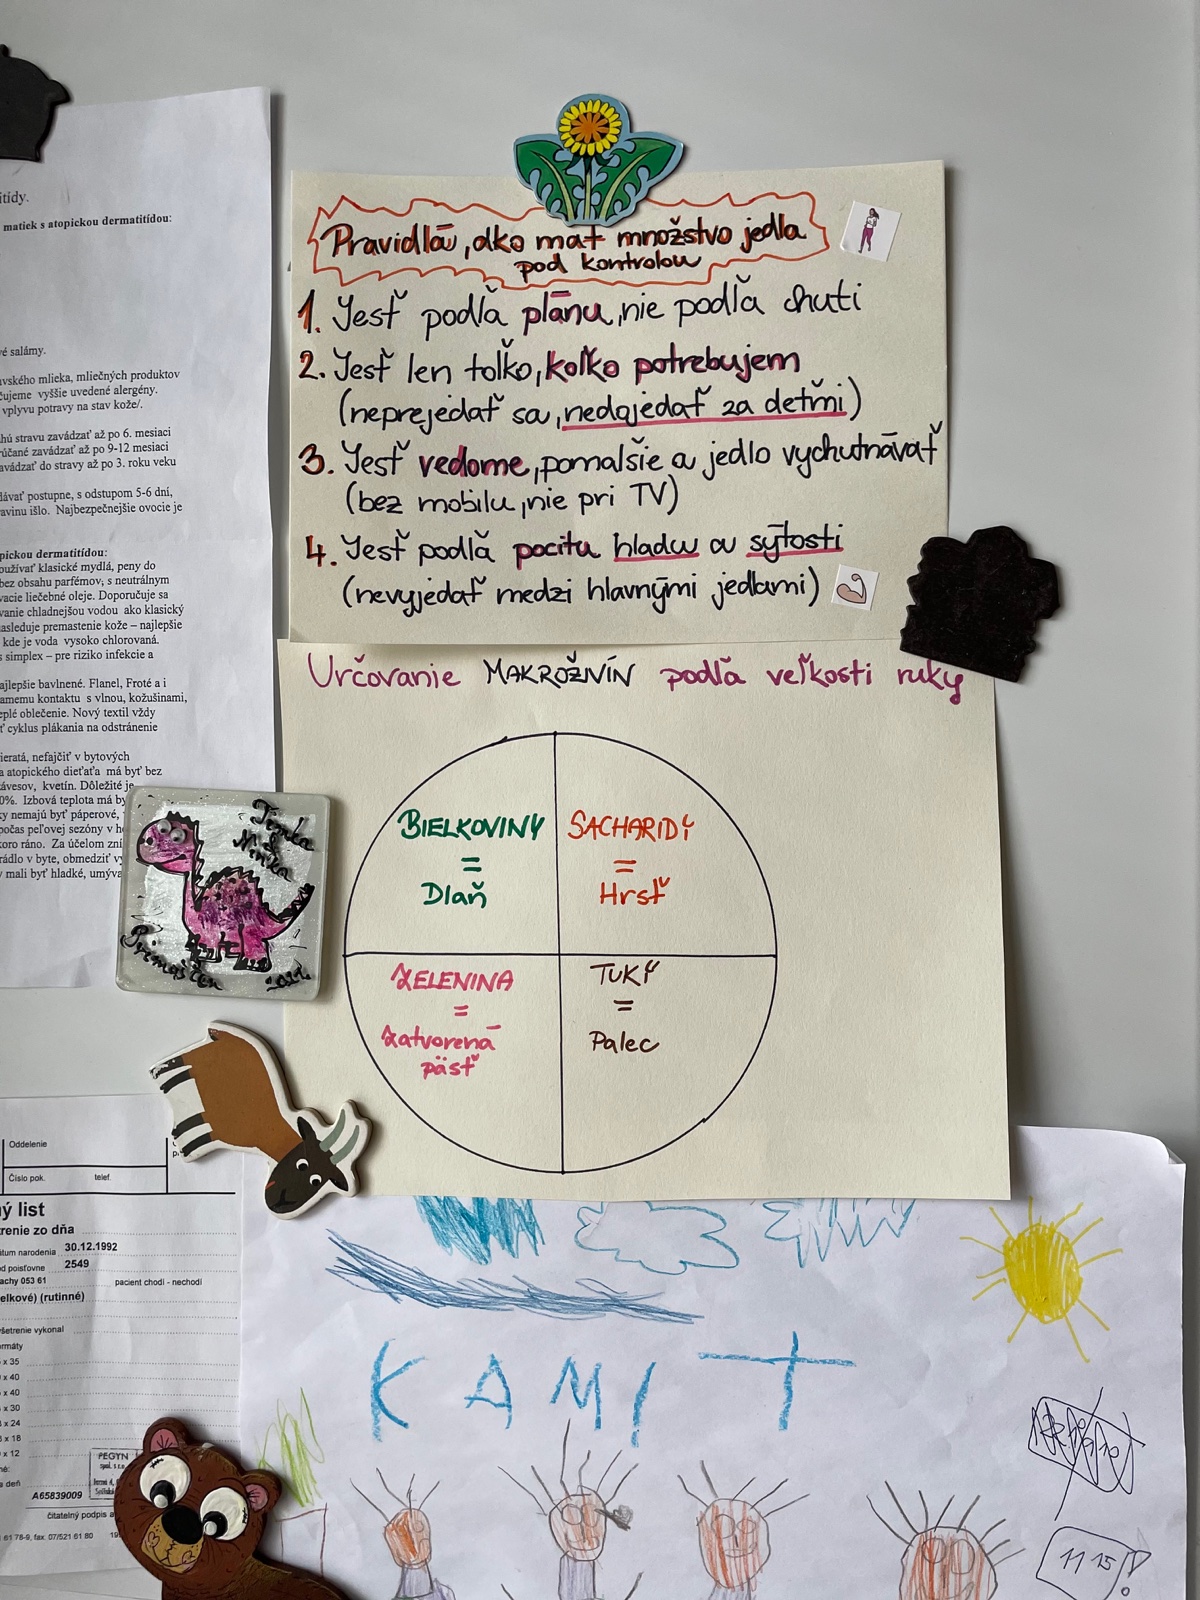 itídy.
matiek s atopickou dermatitídou:
é salámy.
avského mlieka, mliečných produktov
čujeme vyššie uvedené alergény.
vplyvu potravy na stav kože/.
ahú stravu zavádzať až po 6. mesiaci
účané zavádzať až po 9-12 mesiaci
avádzať do stravy až po 3. roku veku
dávať postupne, s odstupom 5-6 dní,
avinu išlo. Najbezpečnejšie ovocie je
pickou dermatitídou:
oužívať klasické mydlá, peny do
bez obsahu parfémov, s neutrálnym
vacie liečebné oleje. Doporučuje sa
vanie chladnejšou vodou ako klasický
nasleduje premastenie kože – najlepšie
kde je voda vysoko chlorovaná.
s simplex – pre riziko infekcie a
ajlepšie bavlnené. Flanel, Froté a i
amemu kontaktu s vlnou, kožušinami,
eplé oblečenie. Nový textil vždy
ť cyklus plákania na odstránenie
ieratá, nefajčiť v bytových
a atopického dieťaťa má byť bez
ávesov, kvetín. Dôležité je
0%. Izbová teplota má by
ky nemajú byť páperové,
počas peľovej sezóny v h
koro ráno. Za účelom zní
rádlo v byte, obmedziť vy
y mali byť hladké, umýva
Pravidlā, ako mať množstvo jedla
pod kontrolou
1. Jesť podľa plánu, nie podľa chuti
2. Jesť len toľko, koľko potrebujem
(neprejedať sa, nedojedať za deťmi)
3. Jesť vedome, pomalšie a jedlo vychutnávať
(bez mobilu, nie pri TV)
4. Jesť podľa pocitu hladu a sýtosti
(nevyjedať medzi hlavnými jedlami)
Určovanie MAKROŽIVÍN podľa veľkosti ruky
BIELKOVINY
=
Dlaň
SACHARIDY
=
Hrsť
ZELENINA
=
Zatvorená
päsť
TUKY
=
Palec
Oddelenie
Číslo pok. telef.
ný list
trenie zo dňa
átum narodenia 30.12.1992
d poisťovne 2549
achy 053 61 pacient chodí - nechodí
elkové) (rutinné)
yšetrenie vykonal
ormáty
x 35
x 40
x 40
x 30
x 24
x 18
x 12
PEGYN
spol. s r.o.
A65839009
čitateľný podpis a
61 78-9, fax: 07/521 61 80
KAMIT
11 15